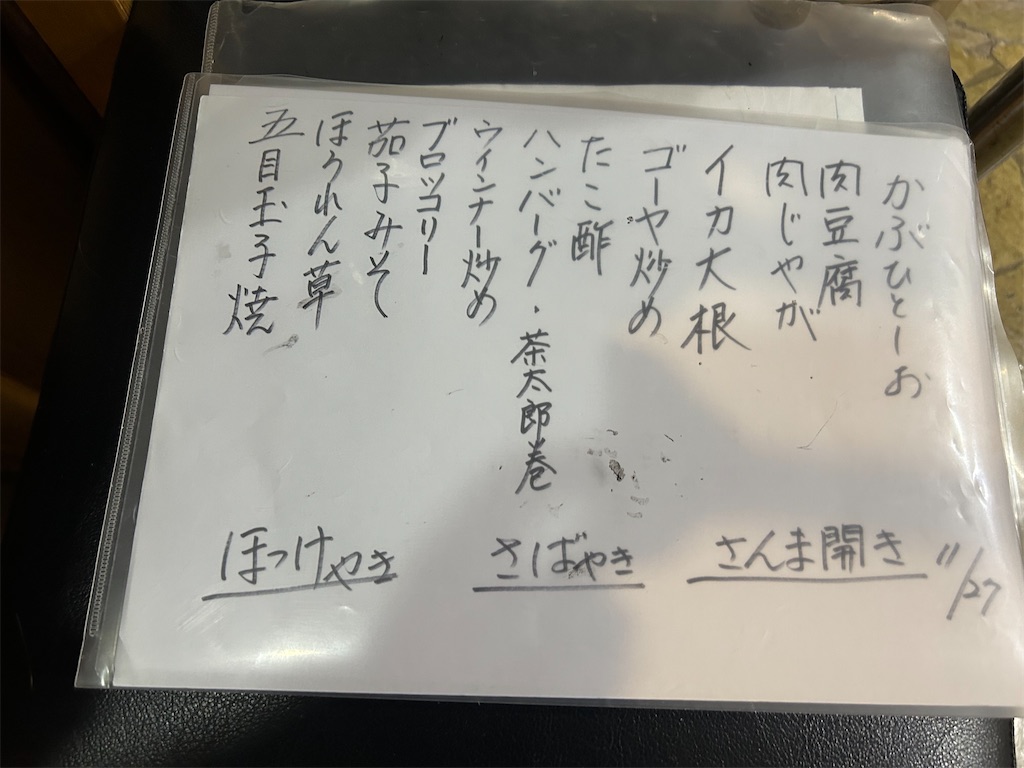 かぶひとーお
肉豆腐
肉じゃが
イカ大根
ゴーヤ炒め
たこ酢
ハンバーグ・茶太郎巻
ウィンナー炒め
ブロッコリー
茄子みそ
ほうれん草
五目玉子焼
さんま開き
さばやき
ほっけやき
11/27